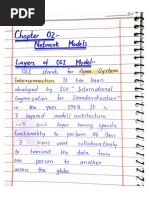 Chapter 02:-
Network Models
Layers of OSI Model:-
OSI stands for Open System
Interconnection. It has been
developed by ISO "International
Organization for Standardization"
in the year 1984. It is
7 layered architecture
with each layer being specific
functionality to perform. All these
7 layers work collaboratively
to transmit the data from
one person to another
across the globe.